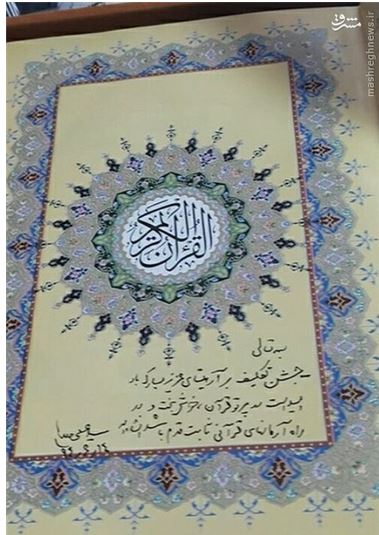 مشرق
mashreghnews.ir
القرآن الكريم
بسمه تعالی
جشن تکلیف بر آرمیتای عزیز مبارک باد
امید است در پرتو قرآن خوشبخت و در
راه آرمانهای قرآنی ثابت قدم باشد انشاءالله